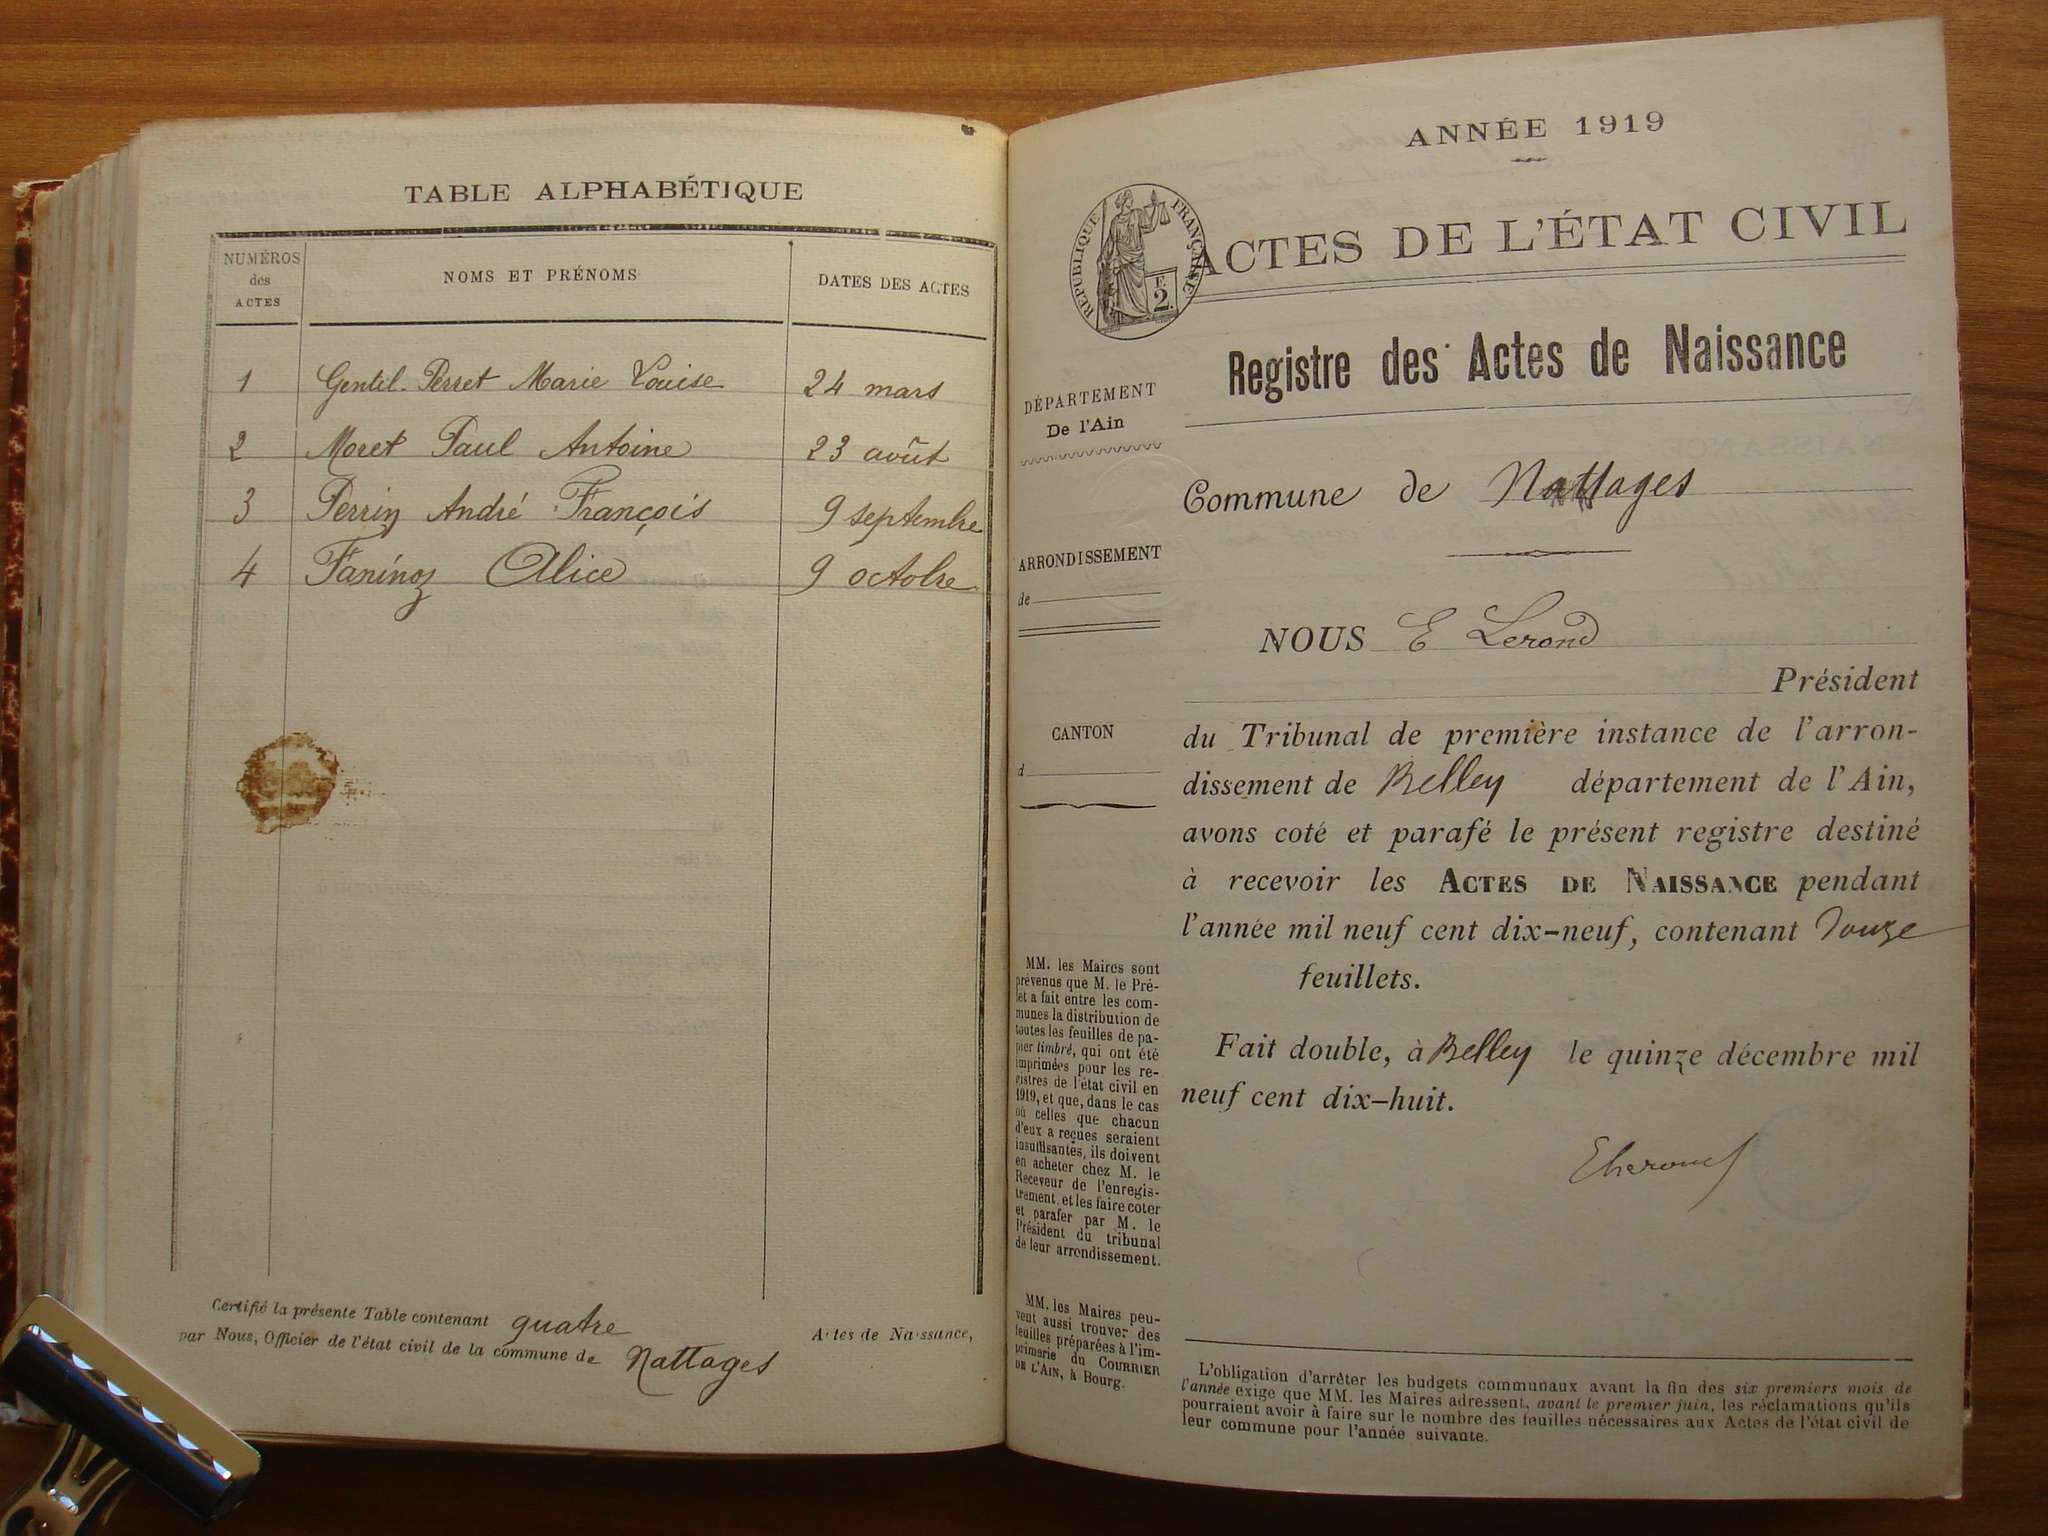 TABLE ALPHABÉTIQUE
NUMÉROS
des
ACTES
NOMS ET PRÉNOMS
DATES DES ACTES
1 Gentil-Perret Marie Louise 24 mars
2 Moret Paul Antoine 23 août
3 Perrin André François 9 septembre
4 Faninoz Alice 9 octobre
Certifié la présente Table contenant quatre Actes de Naissance,
par Nous, Officier de l'état civil de la commune de Nattages
ANNÉE 1919
RÉPUBLIQUE FRANÇAISE
2F
ACTES DE L'ÉTAT CIVIL
Registre des Actes de Naissance
DÉPARTEMENT
De l'Ain
Commune de Nattages
ARRONDISSEMENT
de
NOUS E Lerond
Président
CANTON
d
du Tribunal de première instance de l'arron-
dissement de Belley département de l'Ain,
avons coté et parafé le présent registre destiné
à recevoir les ACTES DE NAISSANCE pendant
l'année mil neuf cent dix-neuf, contenant douze
feuillets.
Fait double, à Belley le quinze décembre mil
neuf cent dix-huit.
ELerond
MM. les Maires sont
prévenus que M. le Pré-
fet a fait entre les com-
munes la distribution de
toutes les feuilles de pa-
pier timbré, qui ont été
imprimées pour les re-
gistres de l'état civil en
1919, et que, dans le cas
où celles que chacun
d'eux a reçues seraient
insuffisantes, ils doivent
en acheter chez M. le
Receveur de l'enregis-
trement, et les faire coter
et parafer par M. le
Président du tribunal
de leur arrondissement.
MM. les Maires peu-
vent aussi trouver des
feuilles préparées à l'im-
primerie du COURRIER
DE L'AIN, à Bourg.
L'obligation d'arrêter les budgets communaux avant la fin des six premiers mois de
l'année exige que MM. les Maires adressent, avant le premier juin, les réclamations qu'ils
pourraient avoir à faire sur le nombre des feuilles nécessaires aux Actes de l'état civil de
leur commune pour l'année suivante.